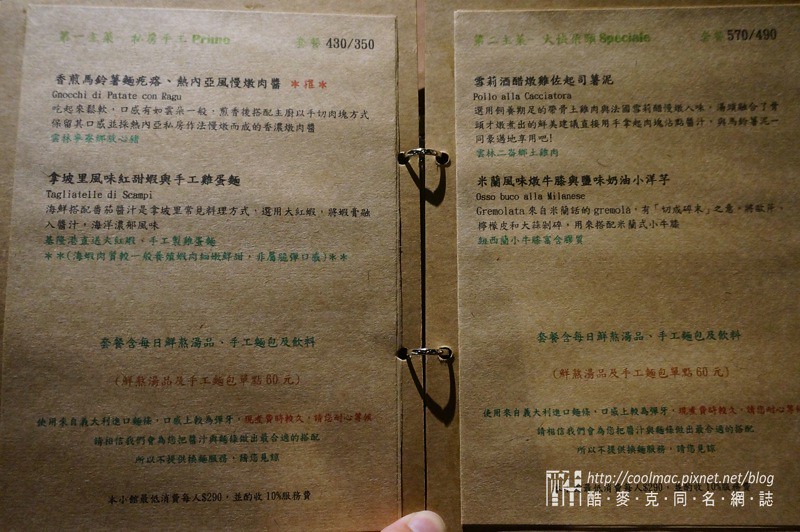 第一主菜 私房手工Primo 套餐 430/350
香煎馬鈴薯麵疙瘩、熱內亞風慢燉肉醬 ＊推＊
Gnocchi di Patate con Ragu
吃起來鬆軟，口感有如雲朵一般，煎香後搭配主廚以手切肉塊方式
保留其口感並採熱內亞私房作法慢燉而成的香濃燉肉醬
雲林
拿坡里風味紅甜蝦與手工雞蛋麵
Tagliatelle di Scampi
海鮮搭配番茄醬汁是拿坡里常見料理方式，選用大紅蝦，將蝦膏融
入醬汁，海洋濃郁風味
基隆港直送大紅蝦，手工製雞蛋麵
＊＊(海蝦肉質較一般養殖蝦肉細嫩鮮甜，非屬脆彈口感)＊＊
套餐含每日鮮熬湯品、手工麵包及飲料
(鮮熬湯品及手工麵包單點 60 元)
使用來自義大利進口麵條，口感上較為彈牙，現煮費時較久，請您耐心等候
請相信我們會為您把醬汁與麵條做出最合適的搭配
所以不提供換麵服務，請您見諒
本小館最低消費每人$290，並酌收 10%服務費
第二主菜 大快朵頤Speciale 套餐 570/490
雪莉酒醋燉雞佐起司薯泥
Pollo alla Cacciatora
選用飼養期足的帶骨土雞肉與法國雪莉醋慢燉入味，湯頭融合了骨
頭才燉煮出的鮮美建議直接用手拿起肉塊沾點醬汁，與馬鈴薯泥一
同豪邁地享用吧！
雲林二崙鄉土雞肉
米蘭風味燉牛膝與鹽味奶油小洋芋
Osso buco alla Milanese
Gremolata 來自米蘭話的 gremolà，有「切成碎末」之意。將歐芹、
檸檬皮和大蒜剁碎，用來搭配米蘭式小牛膝
紐西蘭小牛膝富含膠質
套餐含每日鮮熬湯品、手工麵包及飲料
(鮮熬湯品及手工麵包單點 60 元)
使用來自義大利進口麵條，口感上較為彈牙，現煮費時較久，請您耐心等
請相信我們會為您把醬汁與麵條做出最合適的搭配
所以不提供換麵服務，請您見諒
最低消費每人$290，並酌收 10%服務費
http://coolmac.pixnet.net/blog
酷·麥·克·同·名·網·誌